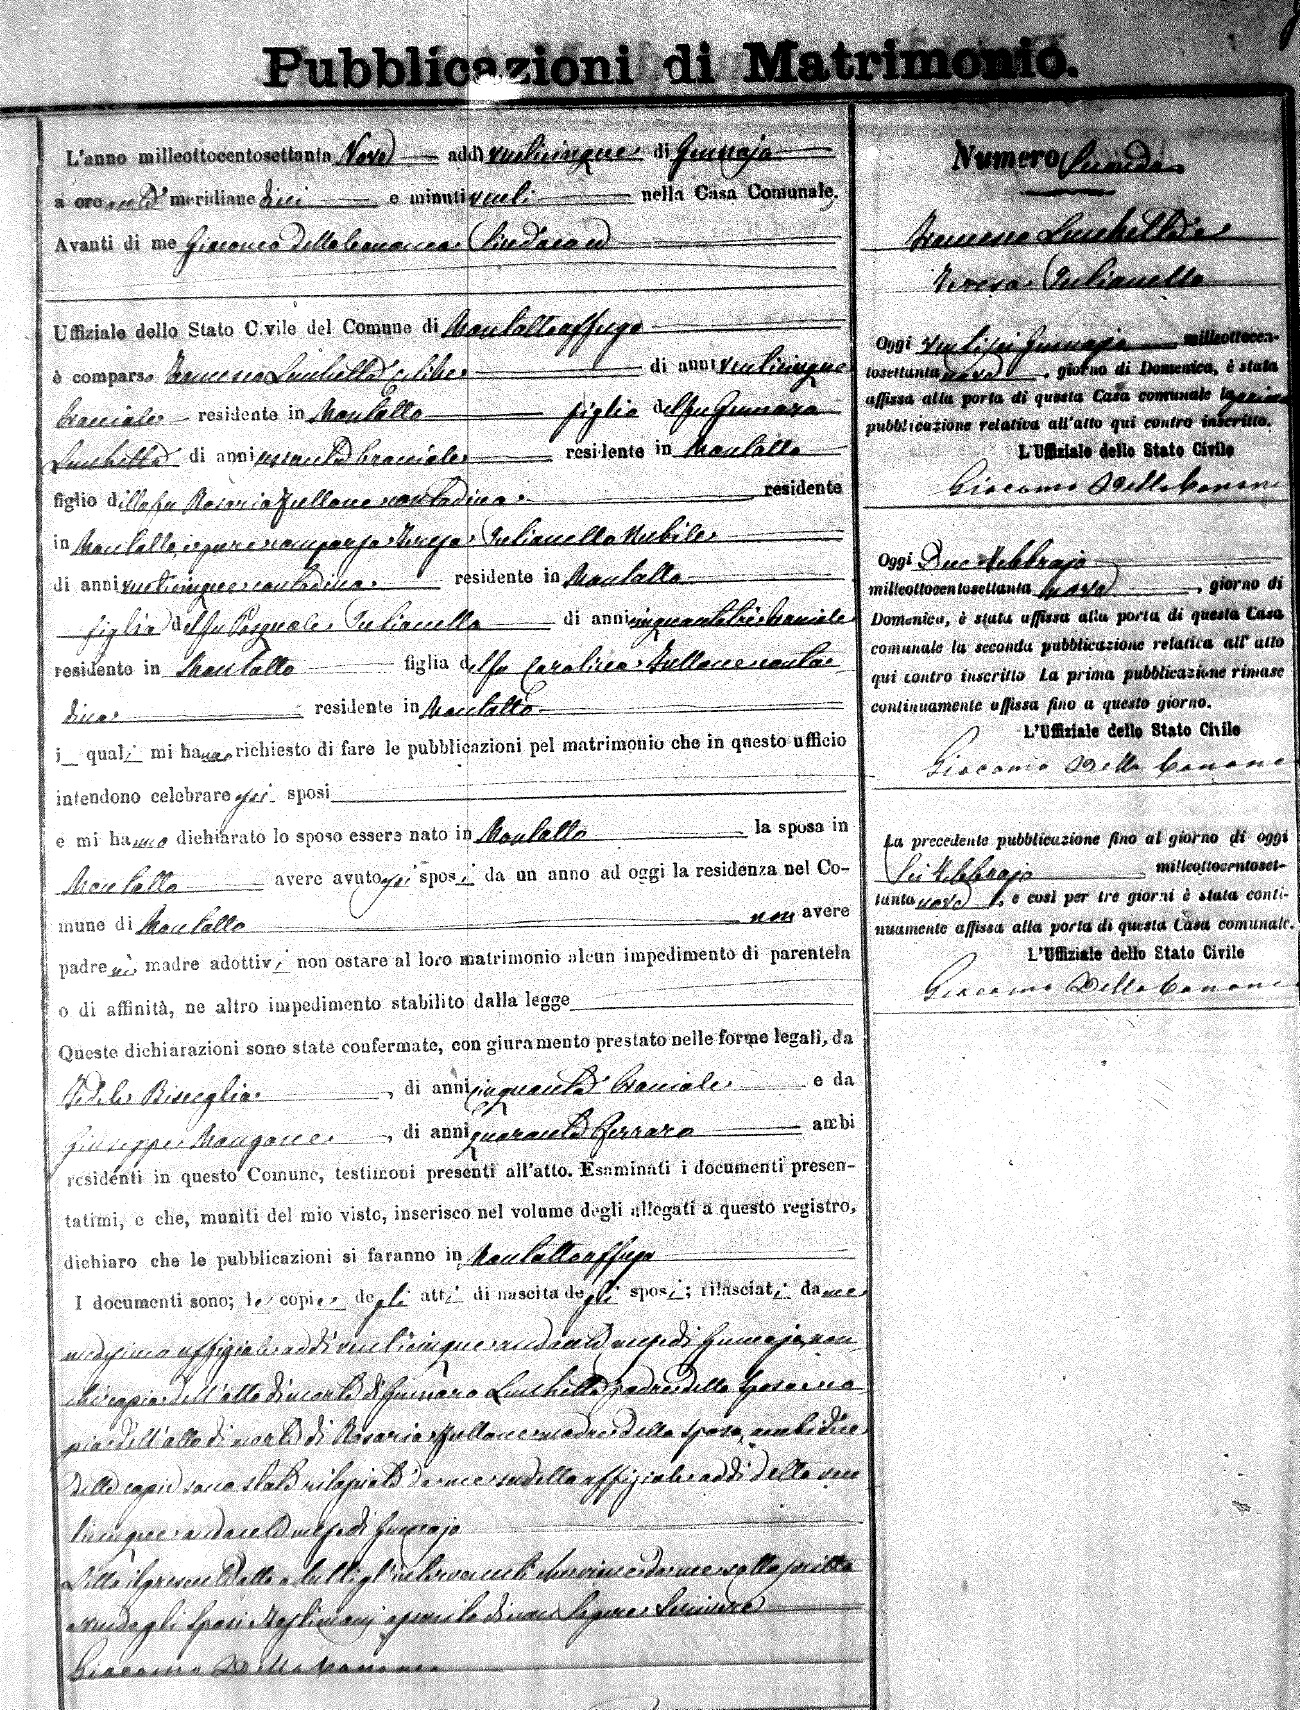 Pubblicazioni di Matrimonio.
L'anno milleottocentosettanta Nove addì venticinque di Gennajo
a ore anti meridiane dieci e minuti venti nella Casa Comunale.
Avanti di me Giacomo della Cananea Sindaco
Uffiziale dello Stato Civile del Comune di Montaltouffugo
è comparso Francesco Luchetta Celibe di anni venticinque
bracciale residente in Montalto figlio del fu Gennaro
Luchetta di anni bracciale residente in Montalto
figlio della fu Rosaria Fullone contadina residente
in Montalto, e pure comparsa Teresa Iulianello Nubile
di anni venticinque contadina residente in Montalto
figlia del fu Pasquale Iulianello di anni cinquantatre bracciale
residente in Montalto figlia della fu Carolina Fullone conta
dina residente in Montalto
i quali mi hanno richiesto di fare le pubblicazioni pel matrimonio che in questo ufficio
intendono celebrare essi sposi
e mi hanno dichiarato lo sposo essere nato in Montalto la sposa in
Montalto avere avuto essi sposi da un anno ad oggi la residenza nel Co-
mune di Montalto non avere
padre nè madre adottivi non ostare al loro matrimonio alcun impedimento di parentela
o di affinità, ne altro impedimento stabilito dalla legge
Queste dichiarazioni sono state confermate, con giuramento prestato nelle forme legali, da
Fedele Bisceglia, di anni cinquanta bracciale e da
Giuseppe Mangone, di anni quaranta Ferraro ambi
residenti in questo Comune, testimoni presenti all'atto. Esaminati i documenti presen-
tatimi, e che, muniti del mio visto, inserisco nel volume degli allegati a questo registro,
dichiaro che le pubblicazioni si faranno in Montaltouffugo
I documenti sono; le copie degli atti di nascita degli sposi; rilasciati da me
medesimo uffiziale addì venticinque andante mese di Gennajo, non
chè copia dell'atto di morte di Gennaro Luchetta padre dello sposo e co
pia dell'atto di morte di Rosaria Fullone madre dello sposo, ambidue
dette copie sono state rilasciate da me sudetto uffiziale addì detto ven
ticinque andante mese di Gennajo
Letto il presente atto a tutti gl'intervenuti viene da me sottoscritto
avendo gli sposi e testimonj asserito di non sapere scrivere
Giacomo Della Cananea
Numero Secondo
Francesco Luchetta e
Teresa Iulianello
Oggi ventisei Gennajo milleottocen-
tosettanta nove, giorno di Domenica, è stata
affissa alla porta di questa Casa comunale la prima
pubblicazione relativa all'atto qui contro inscritto.
L'Uffiziale dello Stato Civile
Giacomo Della Cananea
Oggi Due Febbrajo
milleottocentosettanta nove, giorno di
Domenica, è stata affissa alla porta di questa Casa
comunale la seconda pubblicazione relativa all'atto
qui contro inscritto La prima pubblicazione rimase
continuamente affissa fino a questo giorno.
L'Uffiziale dello Stato Civile
Giacomo Della Cananea
La precedente pubblicazione fino al giorno di oggi
Sei Febbrajo milleottocentoset-
tanta nove, e così per tre giorni è stata conti-
nuamente affissa alla porta di questa Casa comunale.
L'Uffiziale dello Stato Civile
Giacomo Della Cananea